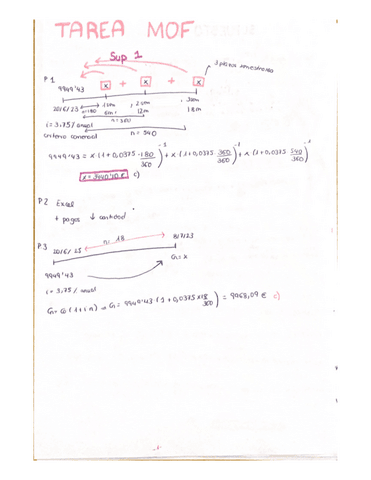 TAREA MOF
Sup 1
3 pagos semestrales
P.1
9949'43 x + x + x
20/6/23 6m = 12m 18m
n=180
n=360
i = 3.75% anual n = 540
criterio comercial
9949'43 = x · (1+0,0375 · 180/360)^-1 + x · (1+0,0375 · 360/360)^-1 + x (1+0,0375 · 540/360)^-1
x = 3440'40 € c)
P.2 Excel
+ pagos ↓ cantidad
P.3 n = 18 8/7/23
20/6/23
9949'43 Cn = x
i = 3.75% anual
Cn = C0 (1+i n) → Cn = 9949'43 (1+0,0375 x 18/360) = 9968,09 € c)